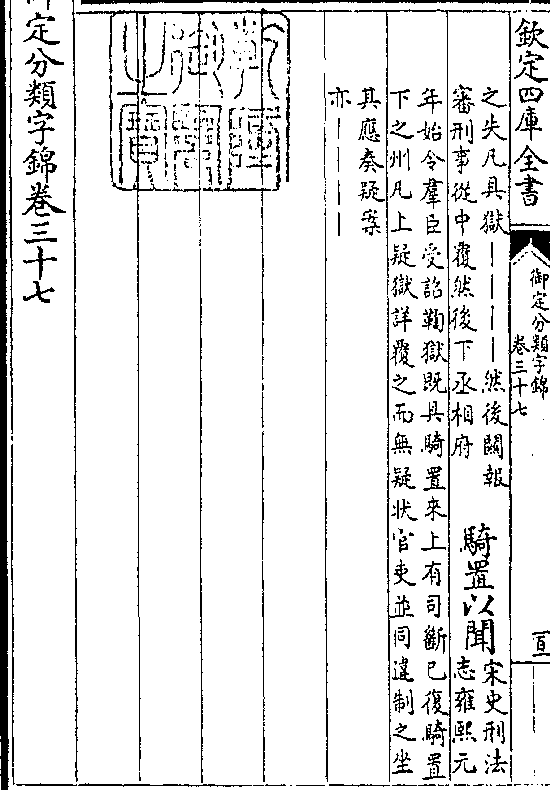 欽定四庫全書
御定分類字錦
卷三十七
百一
之失凡具獄｜｜｜｜然後關報
審刑事從中覆然後下丞相府
騎置以聞
宋史刑法
志雍熙元
年始令羣臣受詔鞫獄既具騎置來上有司斷已復騎置
下之州凡上疑獄詳覆之而無疑狀官吏並同違制之坐
其應奏疑案
亦｜｜｜｜
乾隆御覽之寶
御定分類字錦卷三十七